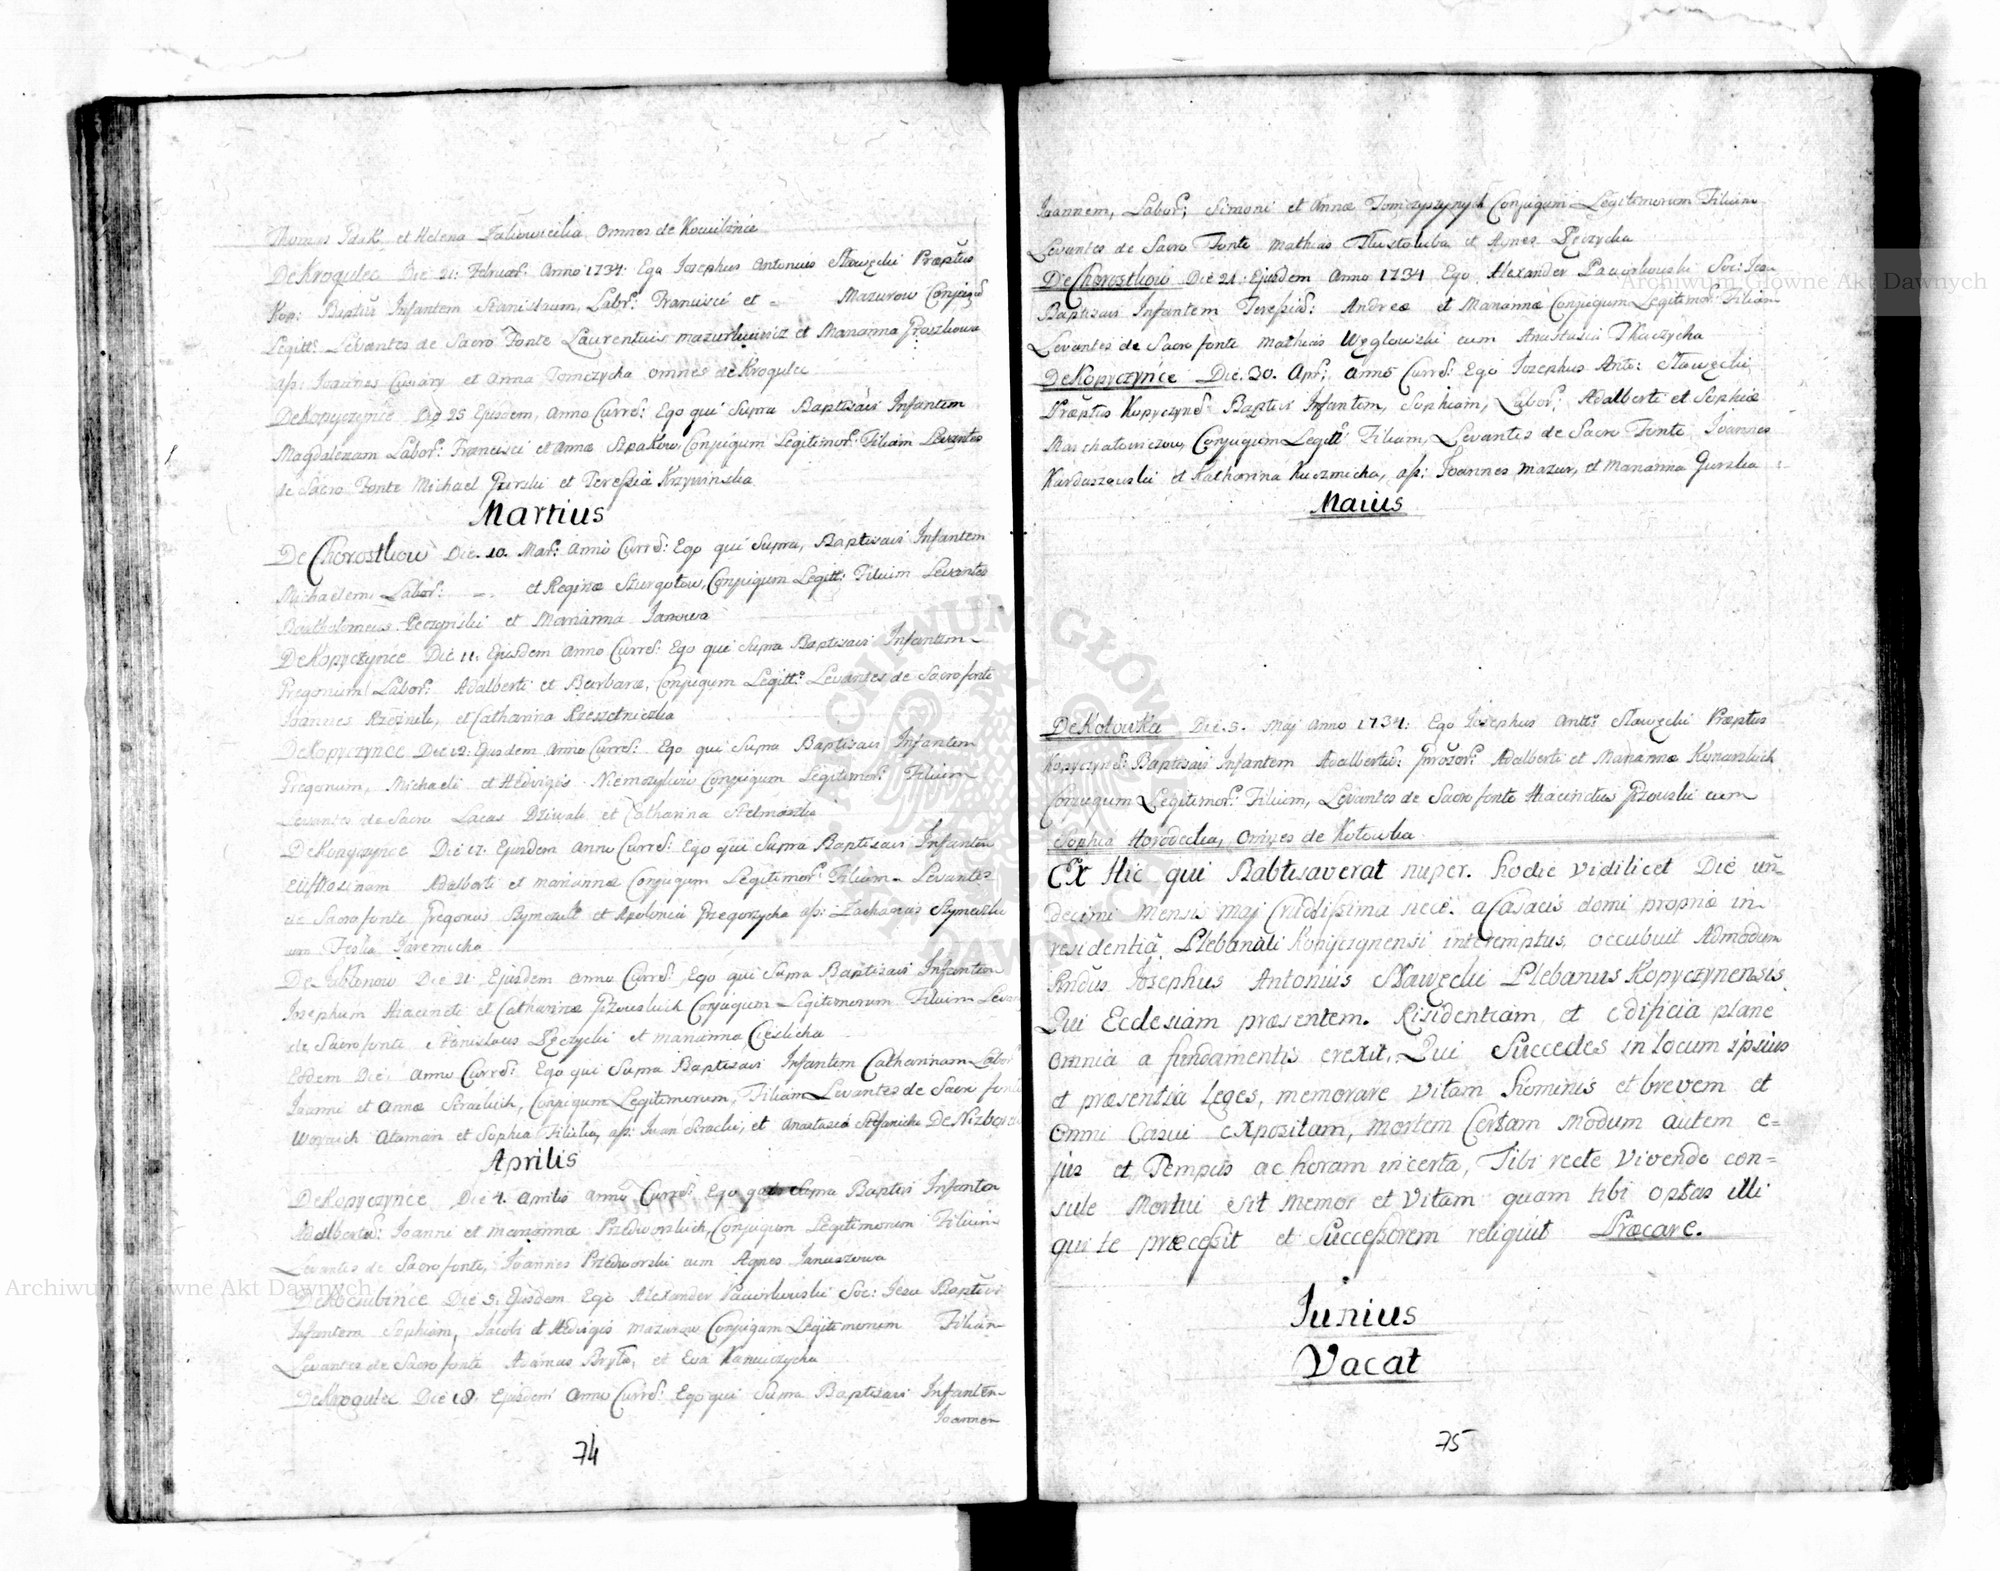 Thomas Ptak et Helena Zaliowicelia omnes de Kociubince
De Krogulec Die 21: Februar: Anno 1734: Ego Josephus Antonius Sławęcki Præptus
Kop: Baptus Infantem Stanislaum, Labr: Francisci et - Mazurow Conjugu
Legitt: Levantes de Sacro Fonte Laurentius Mazurkiewicz et Marianna
ass: Joannes et Anna Tomczycha omnes de Krogulec
De Kopyczynce Die 25 Ejusdem, Anno Curre: Ego qui Supra Baptisavi Infantem
Magdalenam Labor: Francisci et Annæ Szpakow Conjugum Legitimor: Filiam Levantes
de Sacro Fonte Michael Gurski et Teressia Krzywinska
Martius
De Chorostkow Die. 10. Mar: Anno Curre: Ego qui Supra, Baptisavi Infantem
Michaelem Labor: - et Reginæ Szurgotow, Conjugum Legitt: Filium Levantes
Bartholomeus Peczynski et Marianna Janowa
De Kopyczynce Die 11. Ejusdem Anno Curre: Ego qui Supra Baptisavi Infantem
Gregorium Labor: Adalberti et Barbaræ, Conjugum Legitt: Levantes de Sacro fonte
Joannes Rzeznik, et Catharina Rzeszetniczka
De Kopyczynce Die 12: Ejusdem Anno Curre: Ego qui Supra Baptisavi Infantem
Gregorium, Michaeli et Hedvigis Conjugum Legitimor: Filium
Levantes de Sacro Lucas Dziwak et Catharina Stelmaszka
De Kopyczynce Die 17. Ejusdem Anno Curre: Ego qui Supra Baptisavi Infantem
Eufrosinam Adalberti et Mariannæ Conjugum Legitimor: Filiam Levantes
de Sacro fonte Gregorius et Apolonia Grzegorzycha ass: Zacharias
cum Jaremicha
De Jablonow Die 21. Ejusdem Anno Curre: Ego qui Supra Baptisavi Infantem
Josephum Hiacinti et Catharinæ Conjugum Legitimorum Filium
de Sacro fonte Stanislaus et Marianna Cieslicha
Eodem Die, Anno Curre: Ego qui Supra Baptisavi Infantem Catharinam Labor
Joanni et Annæ Conjugum Legitimorum, Filiam Levantes de Sacro fonte
Woyciech Ataman et Sophia ass: Iwan et Anastasia Stefanicha De
Aprilis
De Kopyczynce Die 4. Aprilis Anno Curre: Ego qui Supra Baptisi Infantem
Adalbertu: Joanni et Mariannæ Przedworskich, Conjugum Legitimorum Filium
Levantes de Sacro fonte, Joannes Przedworski cum Agnes Januszowa
De Kociubince Die 5. Ejusdem Ego Alexander Paworkowski Soc: Jesu Baptivi
Infantem Sophiam, Jacobi et Hedvigis Mazurow Conjugum Legitimorum Filiam
Levantes de Sacro fonte Adamus Bryła, et Eva
De Krogulec Die 18. Ejusdem Anno Curre: Ego qui Supra Baptisavi Infantem
Joannem
74
Joannem, Labor: Simoni et Annæ Tomczyszynych Conjugum Legitimorum Filium
Levantes de Sacro Fonte Mathias Tłustoluba et Agnes
De Chorostkow Die 21. Ejusdem Anno 1734 Ego Alexander Paworkowski Soc: Jesu
Baptisavi Infantem Teressia: Andreæ et Mariannæ Conjugum Legitimor: Filiam
Levantes de Sacro fonte Mathias Węglowski cum Anastasia Tkaczycha
De Kopyczynce Die. 30. Apr: Anno Curre: Ego Josephus Anto: Sławęcki
Præptus Kopyczyne: Baptisi Infantem, Sophiam, Labor: Adalberti et Sophiæ
Conjugum Legitt: Filiam, Levantes de Sacro Fonte Joannes
Karduszewski et Katharina Kuczmicha, ass: Joannes Mazur, et Marianna Gurska
Maius
De Kotowka Die. 5. Maj Anno 1734: Ego Josephus Antt: Sławęcki Præptus
Kopyczyne: Baptisavi Infantem Adalbertu: Adalberti et Mariannæ
Conjugum Legitimor: Filium, Levantes de Sacro fonte Hiacinctus cum
Sophia Horodecka, omnes de Kotowka
Ex Hic qui Babtisaverat nuper. hodie Vidilicet Die un-
decimi Mensis Maj Cruddissima nece. a Casacis domi propriæ in
residentia Plebanali Kopyczynensi interemptus, occubuit Admodum
Rndus Josephus Antonius Sławęcki Plebanus Kopyczynensis.
Qui Ecclesiam præsentem. Risidentiam et edificia plane
omnia a fundamentis erexit, Qui Succedes in locum ipsius
et præsentia Leges, memorare Vitam hominis et brevem et
omni Casui expositam, Mortem Certam Modum autem e=
jus et Tempus ac horam incerta, Tibi recte Vivendo con=
sule Mortui sit memor et Vitam quam tibi optas illi
qui te præcessit et Successorem reliquit Præcare.
Junius
Vacat
75
Archiwum Główne Akt Dawnych
Archiwum Główne Akt Dawnych
ARCHIWUM GŁÓWNE AKT DAWNYCH